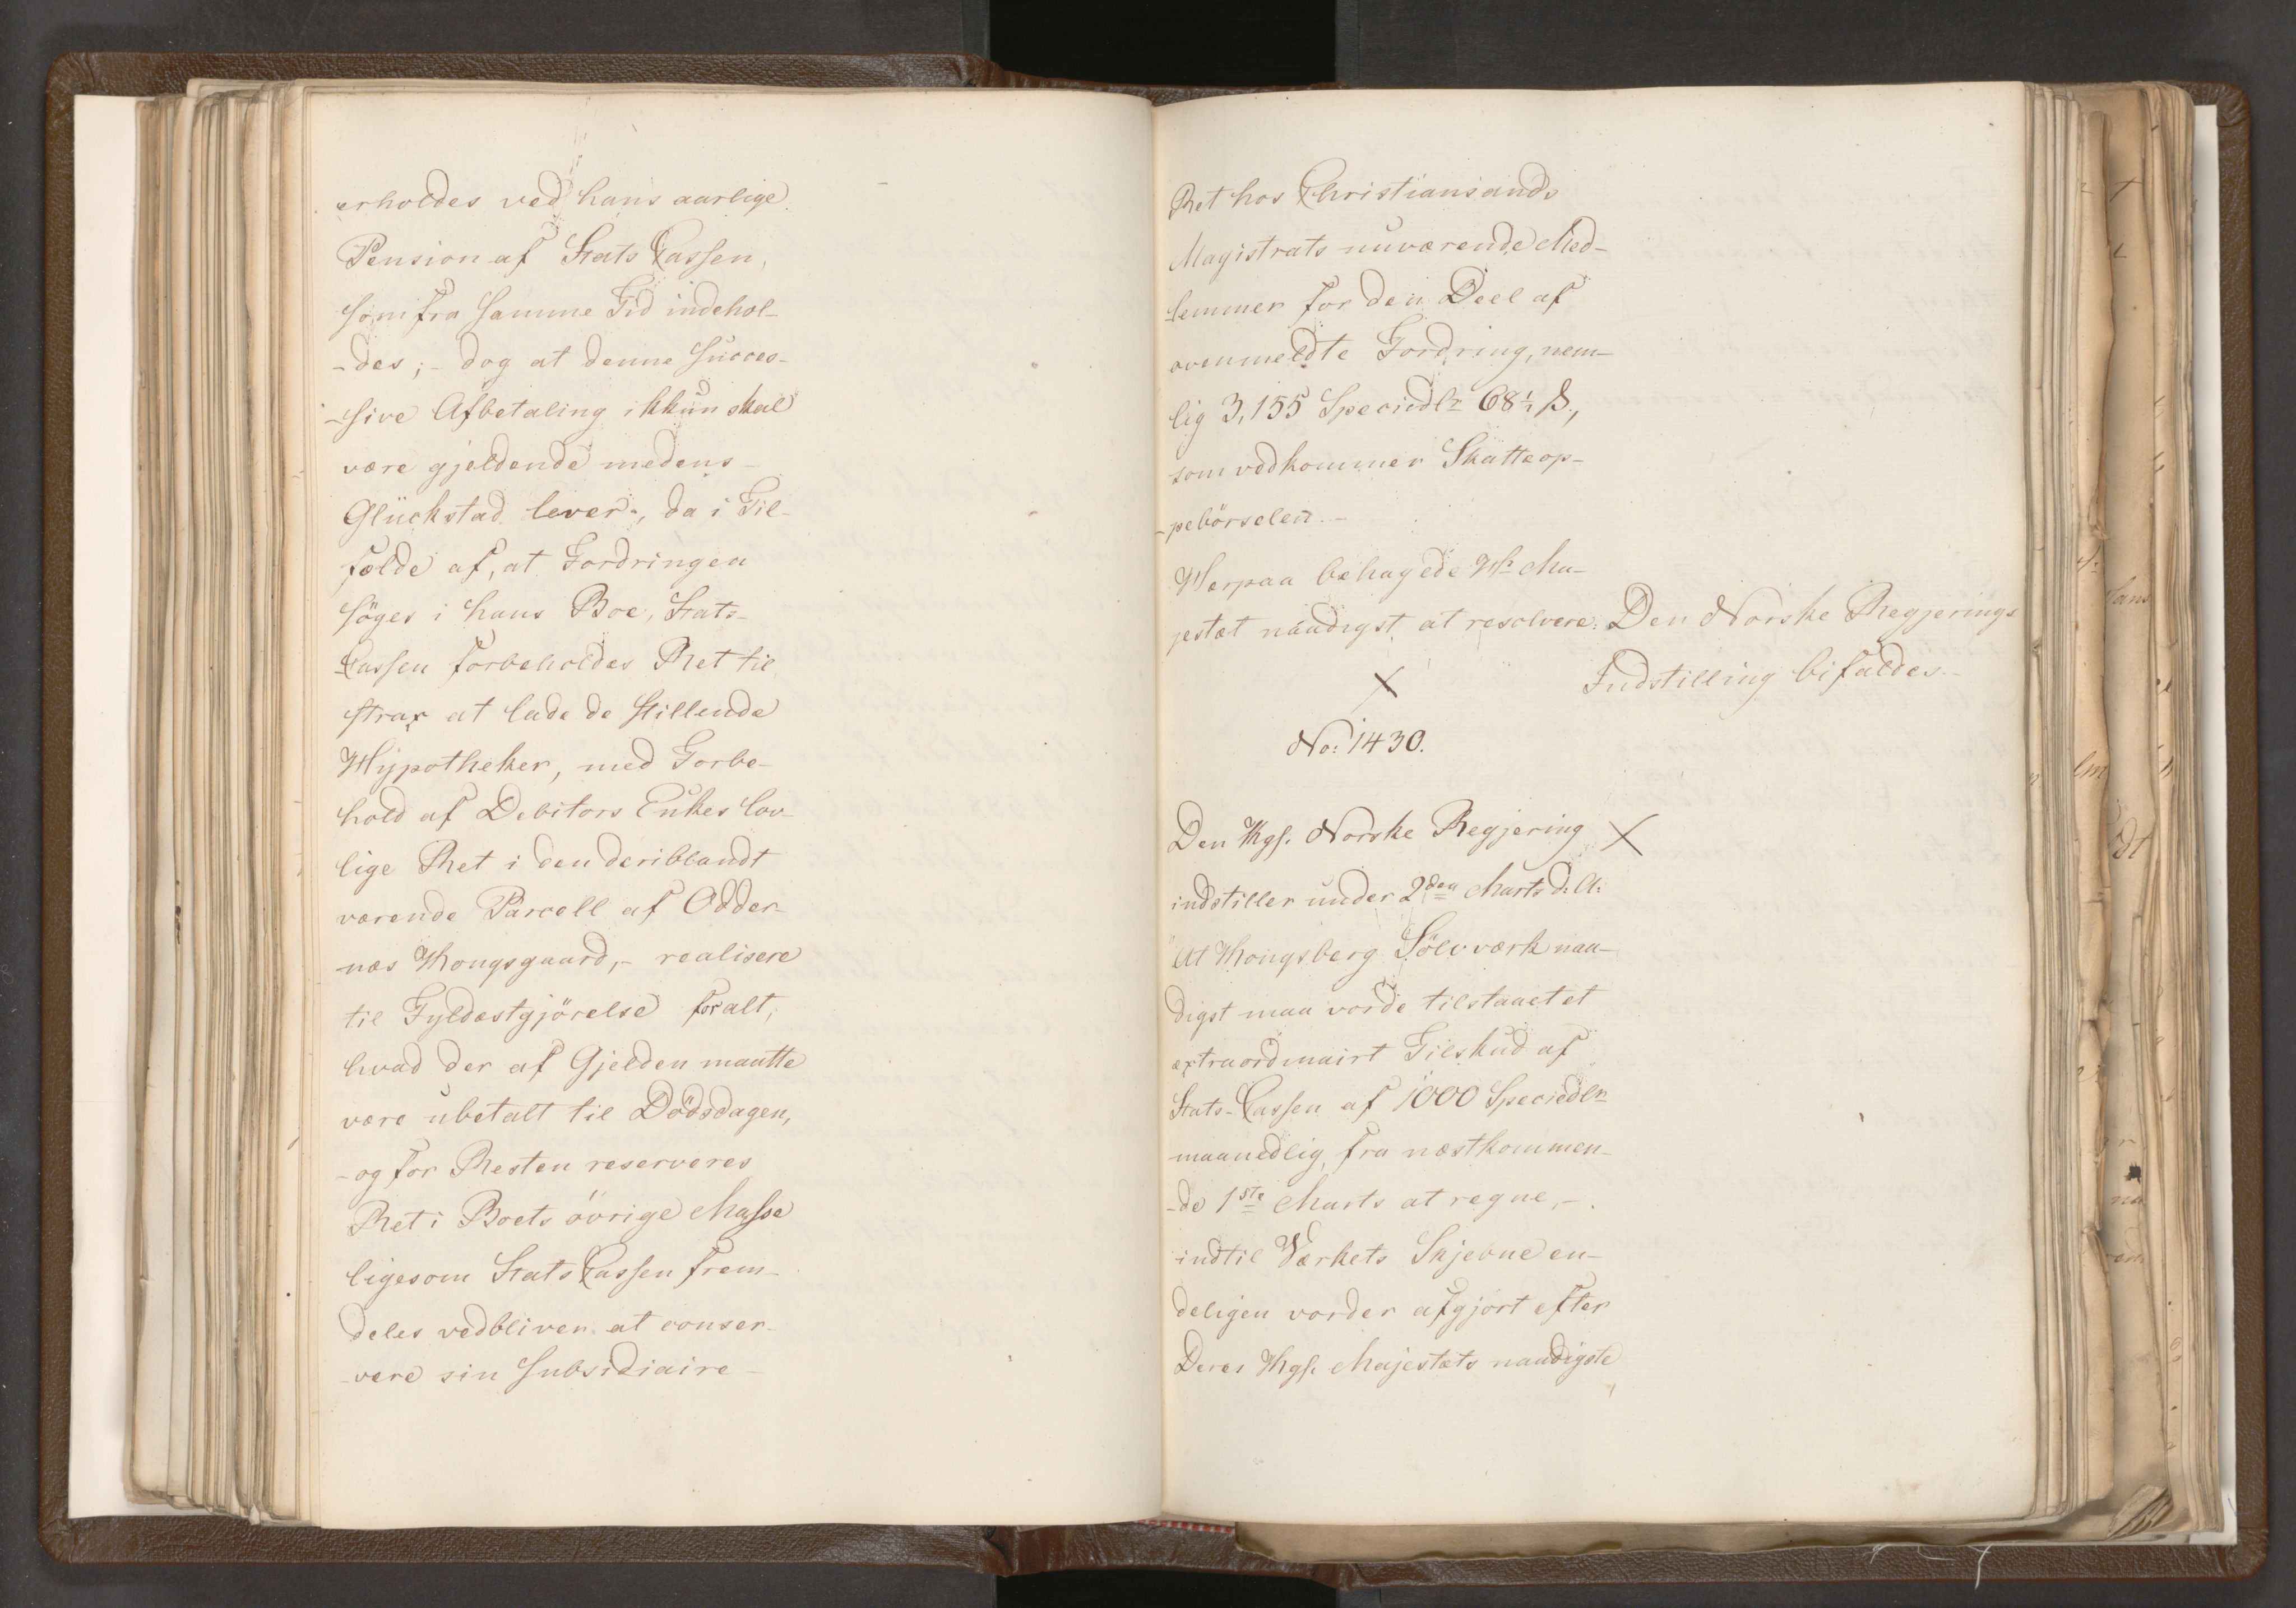 erholdes ved hans aarlige
Pension af Stats Cassen,
som fra samme Tid indehol-
-des; - dog at denne succes-
-sive Afbetaling ikkun skal
være gjeldende medens -
Glückstad lever, da i Til-
fælde af, at Fordringen
søges i hans Boe, Stats-
Cassen forbeholdes Ret til
strax at lade de stillende
Hypotheker, med Forbe-
hold af Debitors Enkes lov-
lige Ret i den deriblandt
værende Parcell af Odder-
næs Kongsgaard, - realisere
til Fyldestgjörelse for alt,
hvad der af Gjelden maatte
være ubetalt til Dödsdagen,
- og for Resten reserveres
Ret i Boets övrige Masse
ligesom Stats Cassen frem-
deles vedbliver at conser-
-vere sin subsidiaire -
Ret hos Christiansands
Magistrats nuværende Med-
lemmer for den Deel af
ovenmeldte Fordring, nem-
lig 3,155 Speciedlr 68½ ß.,
som vedkommer Skatteop-
-pebörselen. -
Herpaa behagede Hs. Ma-
jestæt naadigst at resolvere: Den Norske Regjerings
Indstilling bifaldes. -
No: 1430.
Den Kgs. Norske Regjering
indstiller under 2den Marts d: A:
"At Kongsberg Sölvværk naa-
digst maa vorde tilstaaet et
extraordinairt Tilskud af
Stats-Cassen af 1000 Speciedlr
maanedlig, fra næstkommen-
-de 1ste Marts at regne, -
indtil Værkets Skjebne en-
deligen vorder afgjort efter
Deres Kgs. Majestæts naadigste